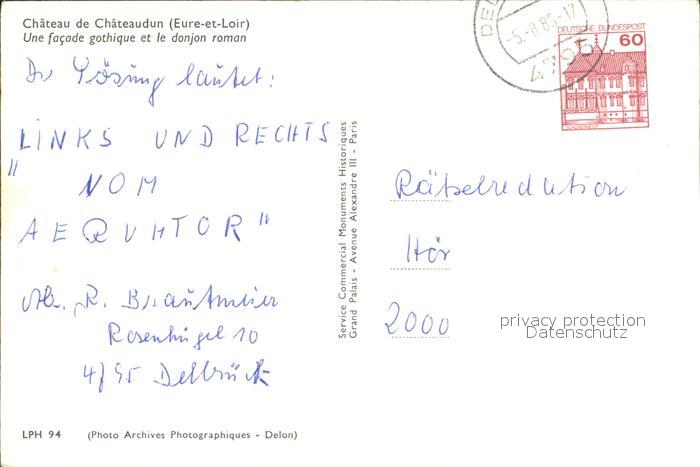 Château de Châteaudun (Eure-et-Loir)
Une façade gothique et le donjon roman
Die Lösung lautet:
"LINKS UND RECHTS
VOM
AEQUATOR"
Abs. R. Brautmeier
Rosenhügel 10
4795 Delbrück
LPH 94 (Photo Archives Photographiques - Delon)
Service Commercial Monuments Historiques
Grand Palais - Avenue Alexandre III - Paris
DEL
-5.-8.85-17
4795
DEUTSCHE BUNDESPOST
60
Rätselredaktion
Hör
2000
privacy protection
Datenschutz